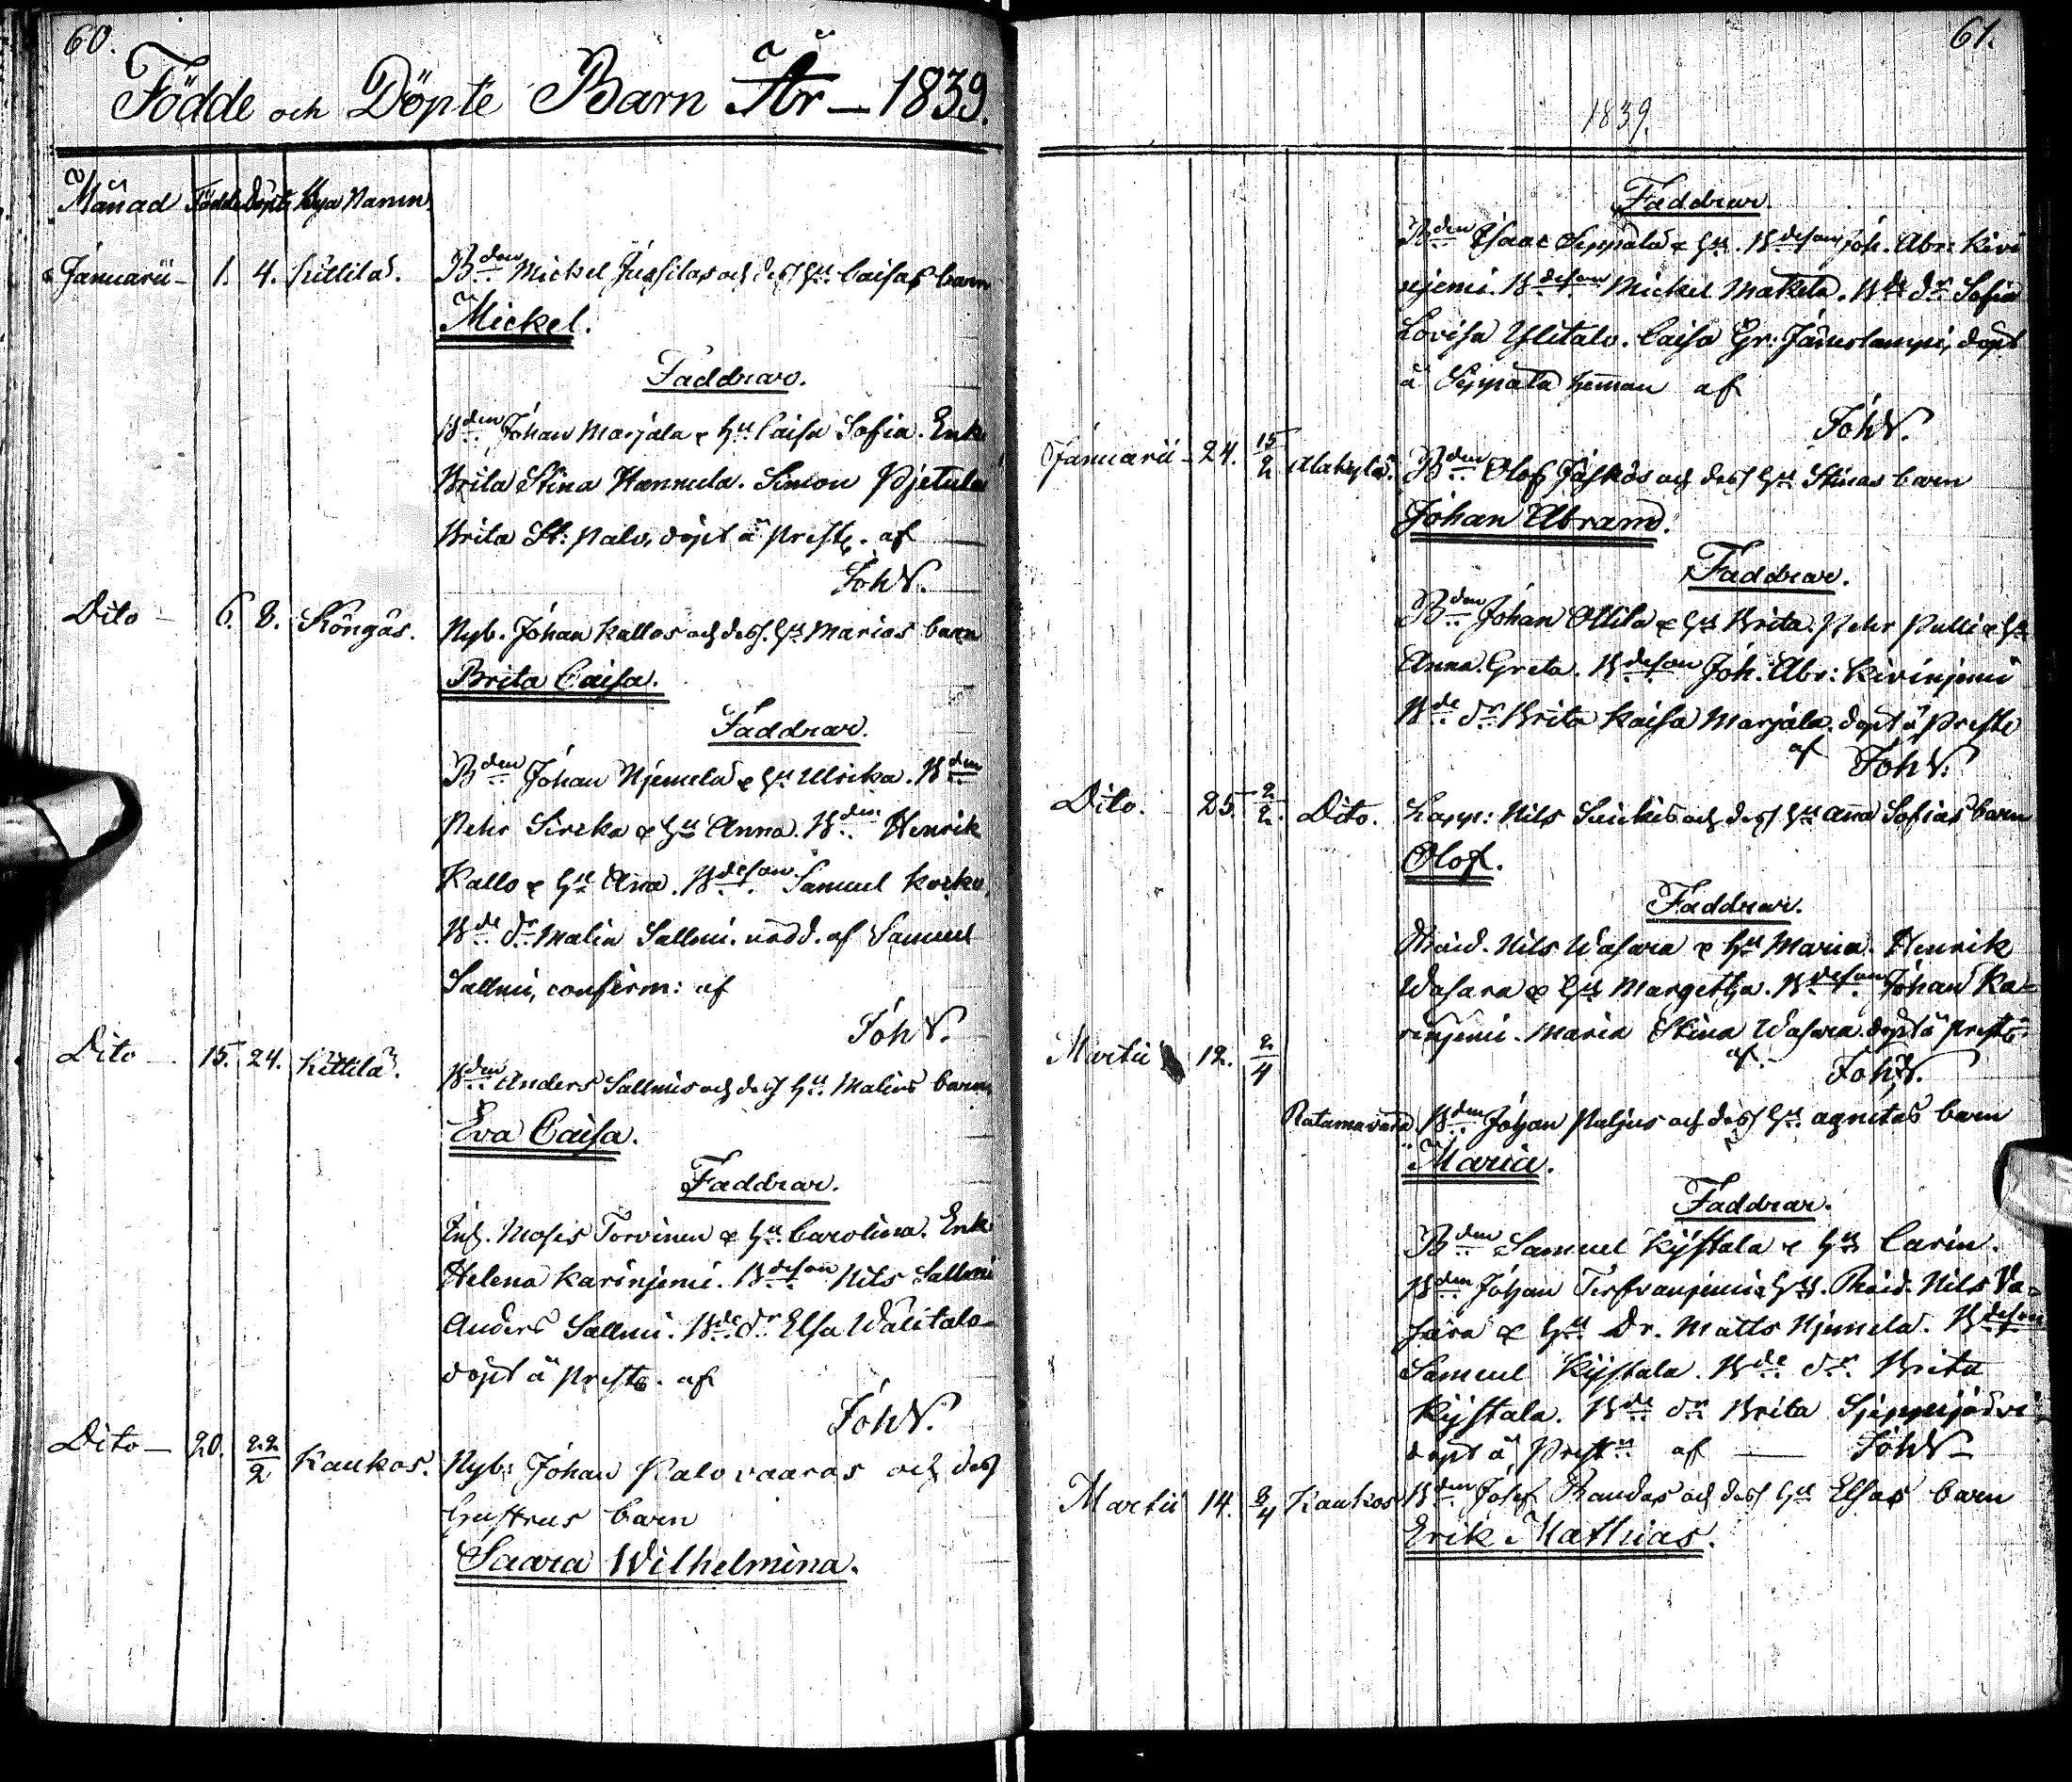 60.
Födde och Döpte Barn År – 1839.
Månad Födde Döpte Bya Namn
Januarii – 1. 4. Kittilä. Bden Mickel Jussilas och dess Hu Caisas barn
Mickel.
Faddrar.
Bden Johan Marjala & Hu Caisa Sofia. Enk.
Brita Stina Hannula. Simon Pjetula
Brita St: Palo, döpt å Prestg. af
Joh W.
Dito – 6. 8. Köngäs. Nyb. Johan Kallos och dess Hu Marias barn
Brita Caisa.
Faddrar.
Bden Johan Njemelä & Hu Ulrika. Bden
Pehr Sircka & Hu Anna. Bden Henrik
Kallo & Hu Anna. Bdeson Samuel
Bde dr Malin Sallmi. nödd. af Samuel
Sallmi, confirm: af
Joh W.
Dito – 15. 24. Kittilä. Bden Anders Sallmis och dess Hu Malins barn
Eva Caisa.
Faddrar.
Inh. Moses Torvinen & Hu Carolina. Enk.
Helena Karinjemi. Bdeson Nils Sallmi
Anders Sallmi. Bde dr Elsa Wälitalo
döpt å Prestg. af
Joh W.
Dito – 20. 22/2 Kaukos. Nyb: Johan Palovaaras och dess
hustrus barn
Saara Wilhelmina.
61.
1839.
Faddrar.
Bden Isaac Seppälä & Hu. Bdeson Joh. Abr: Kivi
njemi. Bdeson Mickel Matkela. Bde dr Sofia
Lovisa Ylitalo. Caisa Gr: döpt
å Seppälä hemman af
Joh W.
Januarii – 24. 15/2 Alakylä. Bden Olof Jäskös och dess Hu Stinas barn
Johan Abram.
Faddrar.
Bden Johan Ollila & Hu Brita. Pehr Pulli & Hu
Anna Greta. Bdeson Joh. Abr: Kivinjemi
Bde dr Brita Kaisa Marjala. döpt å Prestg
af Joh W.
Dito. 25. 2/2. Dito. Nils och dess Hu Anna Sofias barn
Olof.
Faddrar.
Nils Wasara & Hu Maria. Henrik
Wasara & Hu Margetha. Bdeson Johan Ka=
rinjemi. Maria Stina Wasara. döpt å Prestg.
af Joh W.
Martii 12. 2/4
Ratamavara. Bden Johan Paljus och dess Hu Agnetas barn
Maria.
Faddrar.
Bden Samuel Kystala & Hu Carin.
Bden Johan & Hu. Nils Va=
sara & Hu Dr. Matts Njemela. Bdeson
Samuel Kystala. Bde dr Brita
Kystala. Bde dr Brita
döpt å Prestg af – Joh W –
Martii 14. 3/4 Kaukos Bden Josef Randas och dess Hu Elsas barn
Erik Mathias.